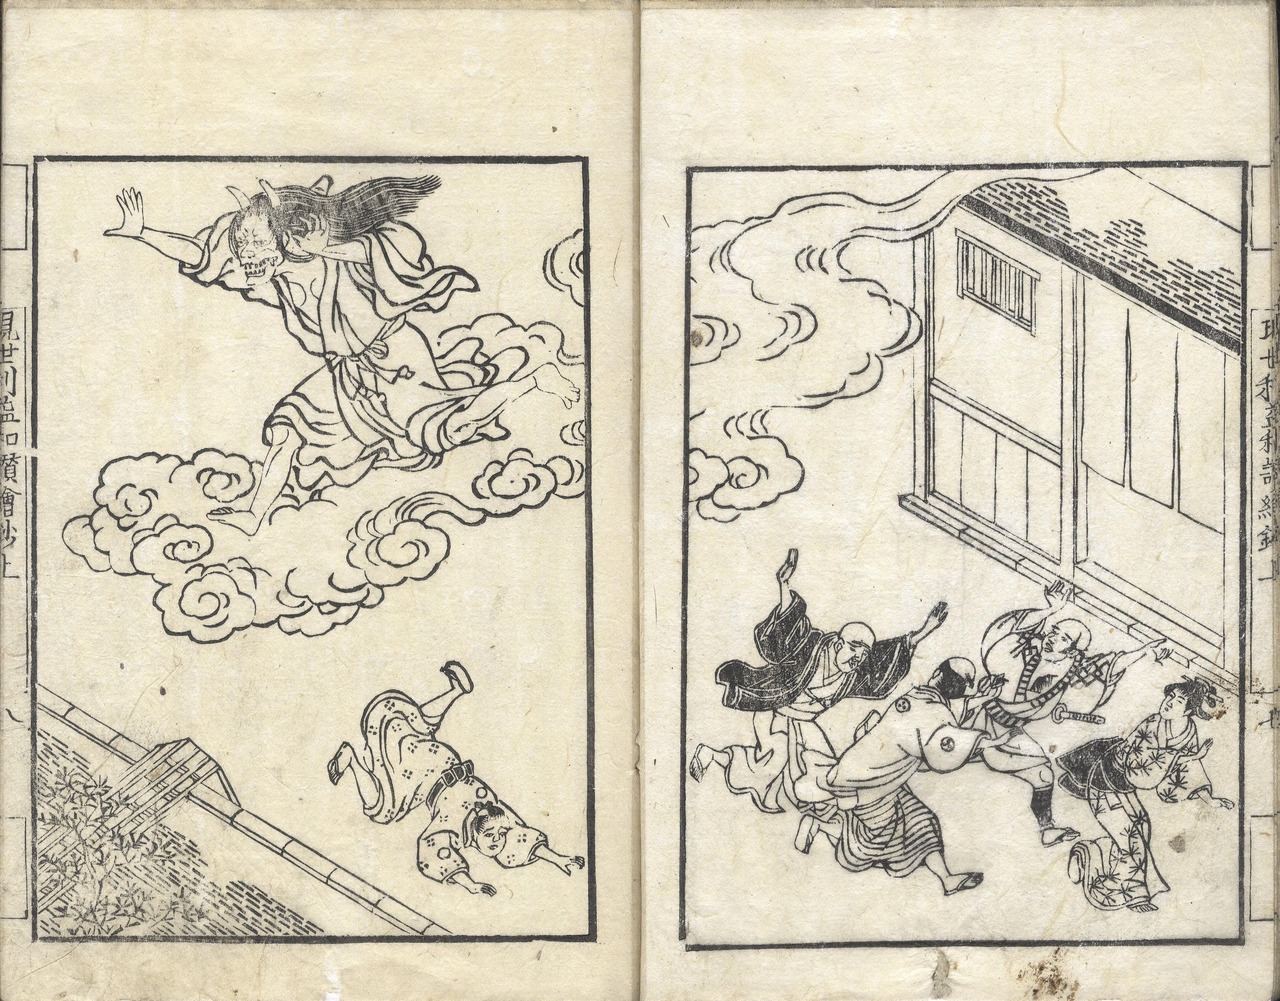 現世利益和讃繪鈔上
七
現世利益和讃繪鈔上
八